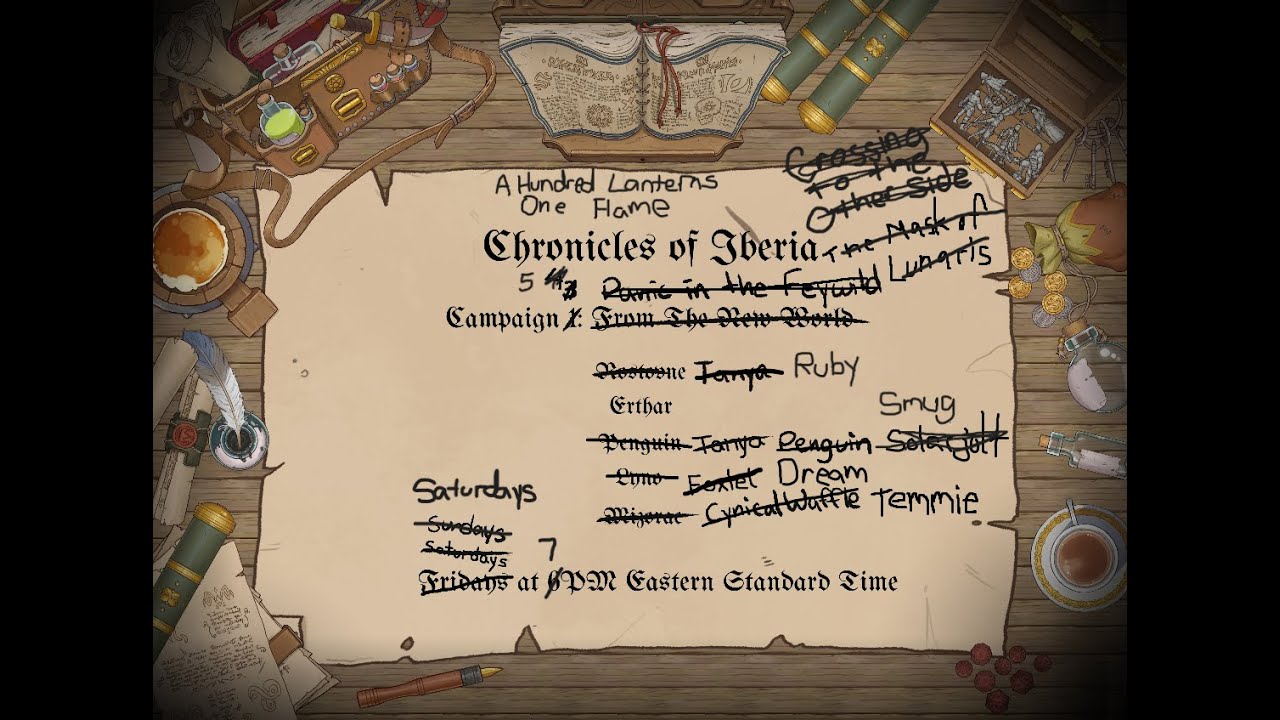 A Hundred Lanterns
One Flame
Crossing
To The
Other Side
Chronicles of Iberia
The Mask of
Lunaris
5 4 3 Panic in the Feywild
Campaign 1: From The New World
Rostovne Tanya Ruby
Erthar
Smug
Penguin Tanya Penguin Solarjolt
Lyno Foxlet Dream
Mizerac CynicalWaffle Temmie
Saturdays
Sundays
Saturdays
7
Fridays at 6PM Eastern Standard Time